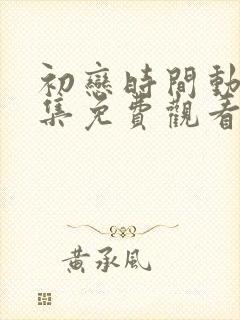 初戀時間動
集免費觀看
黃承風